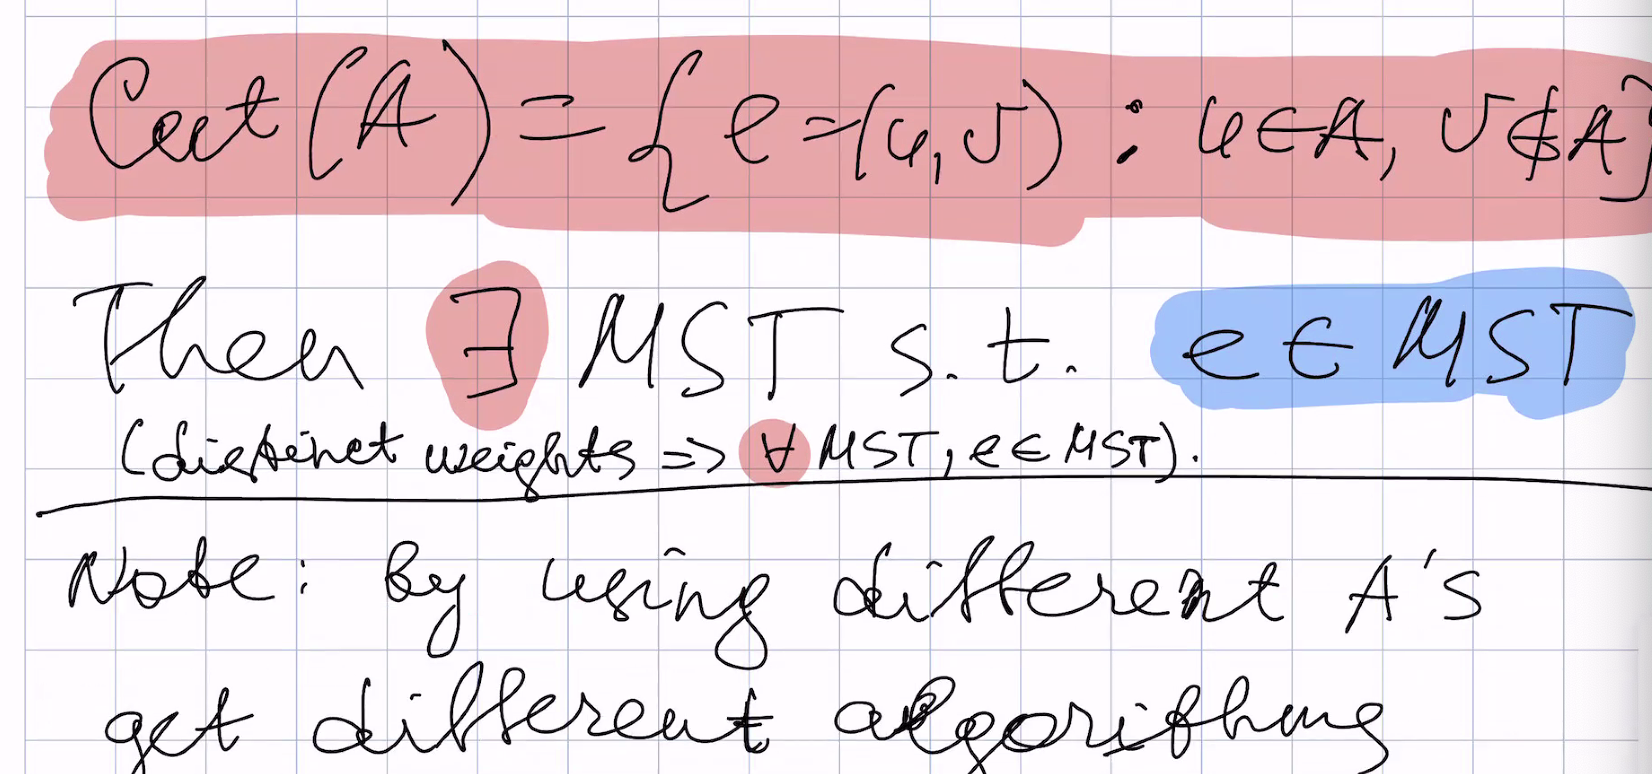 Cut(A) = { e = (u, v) : u ∈ A, v ∉ A }
Then ∃ MST s.t. e ∈ MST
(distinct weights => ∀ MST, e ∈ MST).
Note: By using different A's
get different algorithms